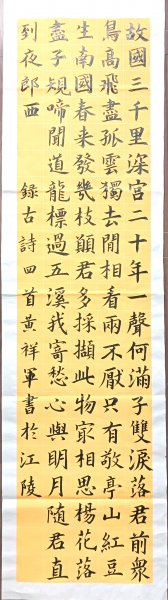 故國三千里深宮二十年一聲何滿子雙淚落君前衆
鳥高飛盡孤雲獨去閒相看兩不厭只有敬亭山紅豆
生南國春来發幾枝願君多採擷此物寂相思楊花落
盡子規啼聞道龍標過五溪我寄愁心與明月随君直
到夜郎西 録古詩四首黃祥軍書於江陵